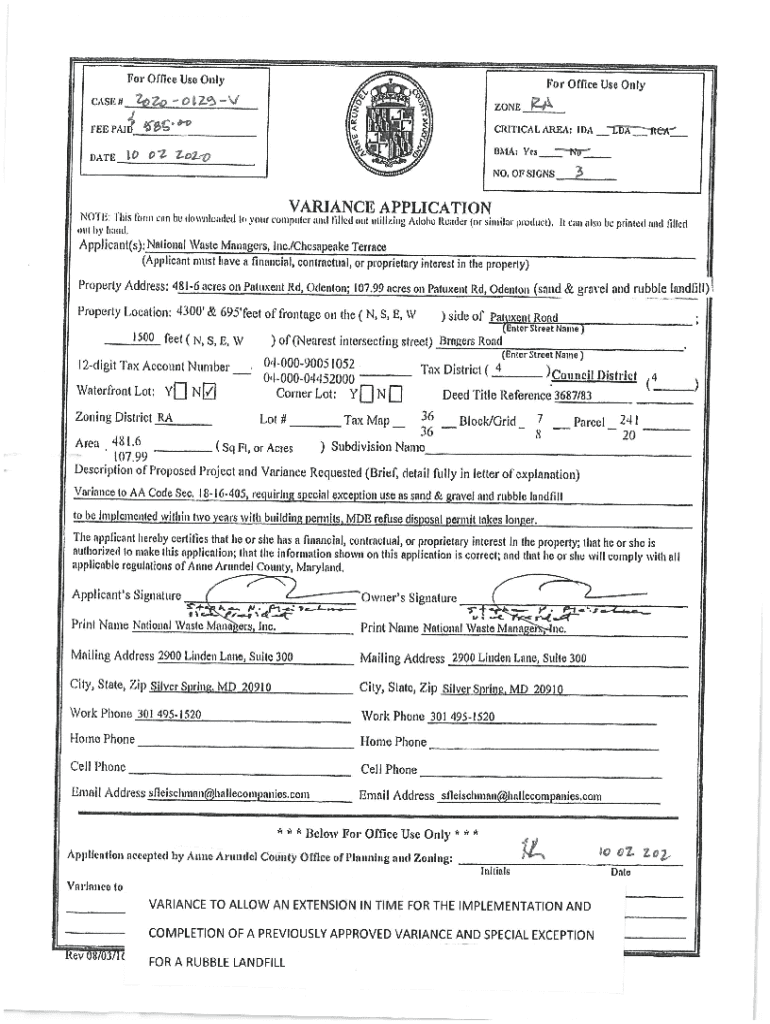 For Office Use Only
CASE # 2020-0129-V
FEE PAID $ 585.00
DATE 10 02 2020
ANNE ARUNDEL COUNTY MARYLAND
For Office Use Only
ZONE RA
CRITICAL AREA: IDA LDA RCA
BMA: Yes No
NO. OF SIGNS 3
VARIANCE APPLICATION
NOTE: This form can be downloaded to your computer and filled out utilizing Adobe Reader (or similar product). It can also be printed and filled
out by hand.
Applicant(s): National Waste Managers, Inc./Chesapeake Terrace
(Applicant must have a financial, contractual, or proprietary interest in the property)
Property Address: 481-6 acres on Patuxent Rd, Odenton; 107.99 acres on Patuxent Rd, Odenton (sand & gravel and rubble landfill)
Property Location: 4300' & 695' feet of frontage on the ( N, S, E, W ) side of Patuxent Road ;
(Enter Street Name )
1500 feet ( N, S, E, W ) of (Nearest intersecting street) Bragers Road .
(Enter Street Name )
12-digit Tax Account Number 04-000-90051052 Tax District ( 4 ) Council District ( 4 )
04-000-04452000
Waterfront Lot: Y N ✓ Corner Lot: Y N Deed Title Reference 3687/83
Zoning District RA Lot # Tax Map 36 Block/Grid 7 Parcel 241
36 8 20
Area 481.6 ( Sq Ft, or Acres ) Subdivision Name
107.99
Description of Proposed Project and Variance Requested (Brief, detail fully in letter of explanation)
Variance to AA Code Sec. 18-16-405, requiring special exception use as sand & gravel and rubble landfill
to be implemented within two years with building permits, MDE refuse disposal permit takes longer.
The applicant hereby certifies that he or she has a financial, contractual, or proprietary interest in the property; that he or she is
authorized to make this application; that the information shown on this application is correct; and that he or she will comply with all
applicable regulations of Anne Arundel County, Maryland.
Applicant's Signature Owner's Signature
Stephen N. Fleischman Stephen N. Fleischman
Vice President Vice President
Print Name National Waste Managers, Inc. Print Name National Waste Managers, Inc.
Mailing Address 2900 Linden Lane, Suite 300 Mailing Address 2900 Linden Lane, Suite 300
City, State, Zip Silver Spring, MD 20910 City, State, Zip Silver Spring, MD 20910
Work Phone 301 495-1520 Work Phone 301 495-1520
Home Phone Home Phone
Cell Phone Cell Phone
Email Address sfleischman@hallecompanies.com Email Address sfleischman@hallecompanies.com
* * * Below For Office Use Only * * *
Application accepted by Anne Arundel County Office of Planning and Zoning: 10 02 202
Initials Date
Variance to
VARIANCE TO ALLOW AN EXTENSION IN TIME FOR THE IMPLEMENTATION AND
COMPLETION OF A PREVIOUSLY APPROVED VARIANCE AND SPECIAL EXCEPTION
FOR A RUBBLE LANDFILL
Rev 08/03/1